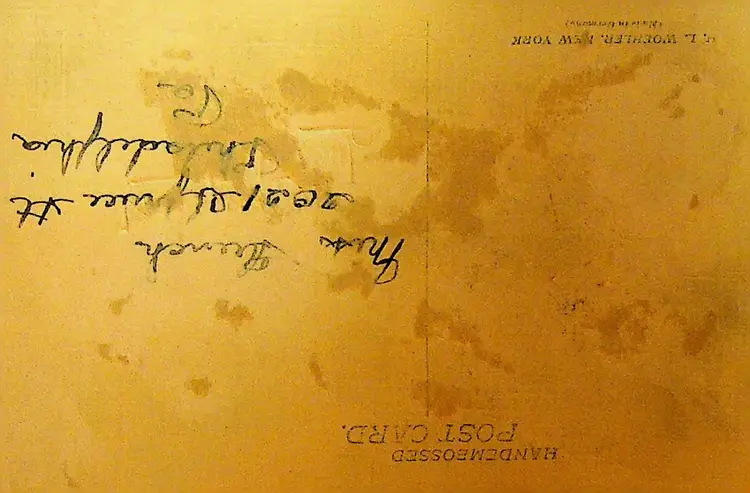 HANDEMBOSSED
POST CARD.
2021 Spruce St
Philadelphia
Pa
H. L. WOEHLER, NEW YORK
(Made in Germany)